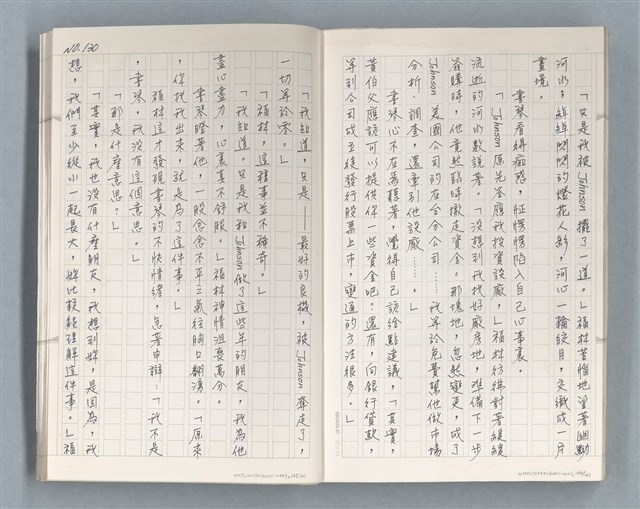 「只是我被Johnson擺了一道。」福林苦惱地望著幽黝
河水；綽綽閃閃的燈花人影，河心一輪皎月，交織成一片
畫境。
書琴看得痴惑，怔愣陷入自己心事裏。
「Johnson原先答應我投資設廠，」福林彷彿對著緩緩
流逝的河水數說著。「沒想到我找好廠房地，準備下一步
簽購時，他竟然臨時撤走資金。那塊地，忽然變更，成了
Johnson美國公司的在台分公司……。我等於免費幫他做市場
分析、調查，還牽引他設廠……。」
書琴心不在焉聽著，覺得自己該給點建議，「其實，
黃伯父應該可以提供你一些資金吧？還有，向銀行貸款，
等到公司成立後發行股票上市，變通的方法很多。」
NO. 130
「我知道，只是——最好的良機，被Johnson奪走了，
一切等於零。」
「福林，這種事並不稀奇。」
「我知道。只是我和Johnson做了這些年的朋友，我為他
盡心盡力，心裏真不舒服。」福林神情沮喪萬分。
書琴瞪著他，一股忿忿不平之氣往胸口翻湧。「原來
，你找我出來，就是為了這件事。」
福林這才發現書琴的不快情緒，急著申辯：「我不是
，書琴，我沒有這個意思。」
「那是什麼意思？」
「其實，我也沒有什麼朋友，我想到妳，是因為，我
想，我們至少從小一起長大，妳比較能理解這件事。」福